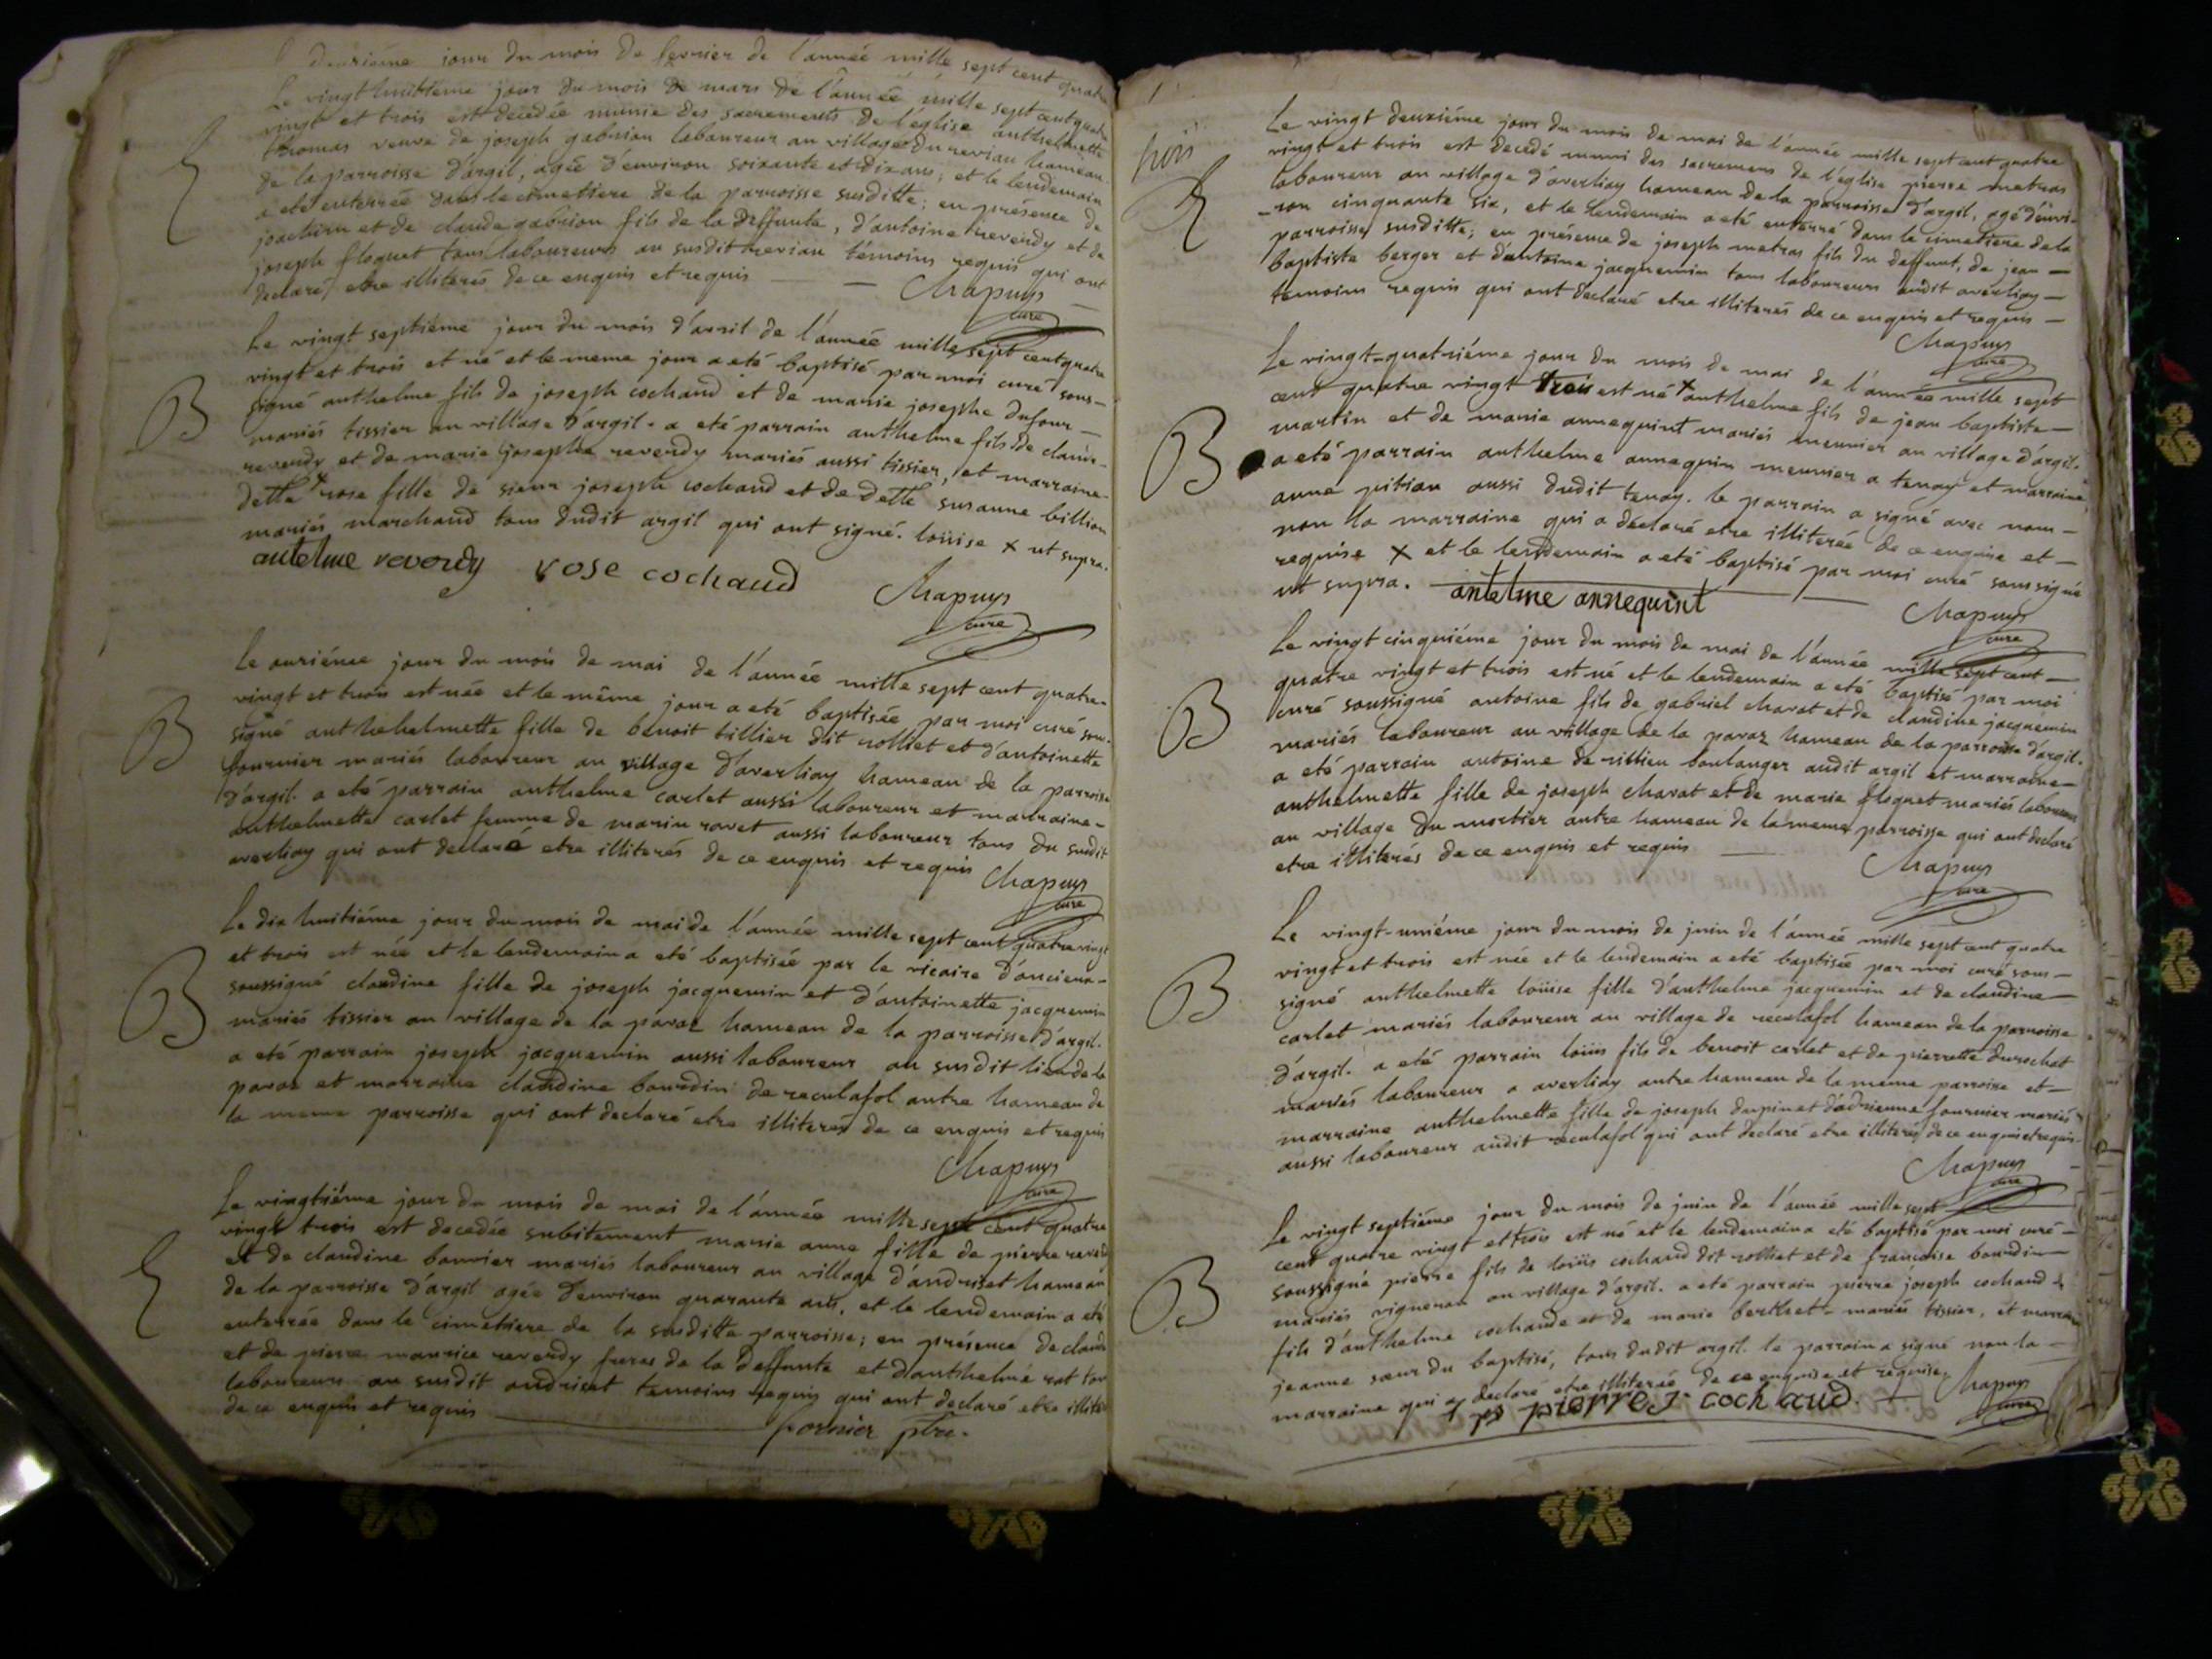 deuxiéme jour du mois de fevrier de l'année mille sept cent quatre
Le vingt huitieme jour du mois de mars de l'année mille sept cent quatre
vingt et trois est decedée munie des sacrements de l'église anthelmette
thomas veuve de joseph gabrion laboureur au village du nevian hameau
de la parroisse d'argil, agée d'environ soixante et dix ans; et le lendemain
a eté enterrée dans le cimettiere de la parroisse susditte; en présence de
joachim et de claude gabrion fils de la deffunte, d'antoine reverdy et de
joseph floquet tous laboureurs au susdit nevian témoins requis qui ont
declaré etre illiterés de ce enquis et requis
Chapuys
curé
Le vingt septiéme jour du mois d'avril de l'année mille sept cent quatre
vingt et trois et né et le meme jour a eté baptisé par moi curé sous-
signé anthelme fils de joseph cochaud et de marie josephe dufour
mariés tissier au village d'argil. a eté parrain anthelme fils de claude
reverdy et de marie josephe reverdy mariés aussi tissier, et marraine
delle + rose fille de sieur joseph cochaud et de delle susanne billion
mariés marchand tous dudit argil qui ont signé. loüise x ut supra.
antelme reverdy rose cochaud
Chapuys
curé
B
Le onziéme jour du mois de mai de l'année mille sept cent quatre-
vingt et trois est née et le même jour a eté baptisée par moi curé sous-
signé anthehelmette fille de benoit tillier dit rolliet et d'antoinette
fournier mariés laboureur au village d'averliay hameau de la parroisse
d'argil. a eté parrain anthelme carlet aussi laboureur et marraine-
anthelmette carlet femme de marin rovet aussi laboureur tous du susdit
averliay qui ont declaré etre illiterés de ce enquis et requis
Chapuys
curé
B
Le dix huitiéme jour du mois de mai de l'année mille sept cent quatre vingt
et trois est née et le lendemain a eté baptisée par le vicaire d'anciena-
soussigné claudine fille de joseph jacquemin et d'antoinette jacquemin
mariés tissier au village de la pavaz hameau de la parroisse d'argil.
a eté parrain joseph jacquemin aussi laboureur au susdit lieu de la
pavaz et marraine claudine bourdin de reculafol autre hameau de
la meme parroisse qui ont declaré etre illiterés de ce enquis et requis
Chapuys
curé
B
Le vingtiéme jour du mois de mai de l'année mille sept cent quatre
vingt trois est decedée subitement marie anne fille de pierre reverdy
et de claudine bouvier mariés laboureur au village d'andriset hameau
de la parroisse d'argil agée d'environ quarante ans, et le lendemain a eté
enterrée dans le cimetiere de la susditte parroisse; en présence de claude
et de pierre maurice reverdy freres de la deffunte et d'anthelme rat tous
laboureurs au susdit andriset temoins requis qui ont declaré etre illiterés
de ce enquis et requis
fornier ptre.
trois
Le vingt deuxiéme jour du mois de mai de l'année mille sept cent quatre
vingt et trois est decedé muni des sacremens de l'église pierre metras
laboureur au village d'averliay hameau de la parroisse d'argil, agé d'envi-
-ron cinquante six, et le lendemain a eté enterré dans le cimetiere de la
parroisse susditte; en présence de joseph metras fils du deffunt, de jean
baptiste berger et d'antoine jacquemin tous laboureurs audit averliay
temoins requis qui ont declaré etre illiterés de ce enquis et requis
Chapuys
curé
Le vingt-quatriéme jour du mois de mai de l'année mille sept
cent quatre vingt trois est né + anthelme fils de jean baptiste
martin et de marie annequint mariés meunier au village d'argil.
a eté parrain anthelme annequin meunier a tenay et marraine
anne pition aussi dudit tenay. le parrain a signé avec nous
non la marraine qui a déclaré etre illiterée de ce enquise et
requise x et le lendemain a eté baptisé par moi curé soussigné
ut supra.
antelme annequint
Chapuys
curé
B
Le vingt cinquiéme jour du mois de mai de l'année mille sept cent
quatre vingt et trois est né et le lendemain a eté baptisé par moi
curé soussigné antoine fils de gabriel charat et de claudine jacquemin
mariés laboureur au village de la pavaz hameau de la parroisse d'argil.
a eté parrain antoine de rillieu boulanger audit argil et marraine
anthelmette fille de joseph charat et de marie floquet mariés laboureur
au village du mortier autre hameau de la meme parroisse qui ont declaré
etre illiterés de ce enquis et requis
Chapuys
curé
B
Le vingt-uniéme jour du mois de juin de l'année mille sept cent quatre
vingt et trois est née et le lendemain a eté baptisée par moi curé sous-
signé anthelmette loüise fille d'anthelme jacquemin et de claudine
carlet mariés laboureur au village de reculafol hameau de la parroisse
d'argil. a eté parrain loüis fils de benoit carlet et de pierrette durochat
mariés laboureur a averliay autre hameau de la meme parroise et
marraine anthelmette fille de joseph dupin et d'adrienne fournier mariés
aussi laboureur audit reculafol qui ont declaré etre illiterés de ce enquis et requis
Chapuys
curé
B
Le vingt septiéme jour du mois de juin de l'année mille sept
cent quatre vingt et trois est né et le lendemain a eté baptisé par moi curé
soussigné pierre fils de loüis cochaud dit rolliet et de françoise bourdin
mariés vigneron au village d'argil. a eté parrain pierre joseph cochaud
fils d'anthelme cochaud et de marie berthet mariés tissier, et marraine
jeanne sœur du baptisé, tous dudit argil. le parrain a signé non la
marraine qui a declaré etre illiterée de ce enquise et requise.
pierre j cochaud
Chapuys
curé
B